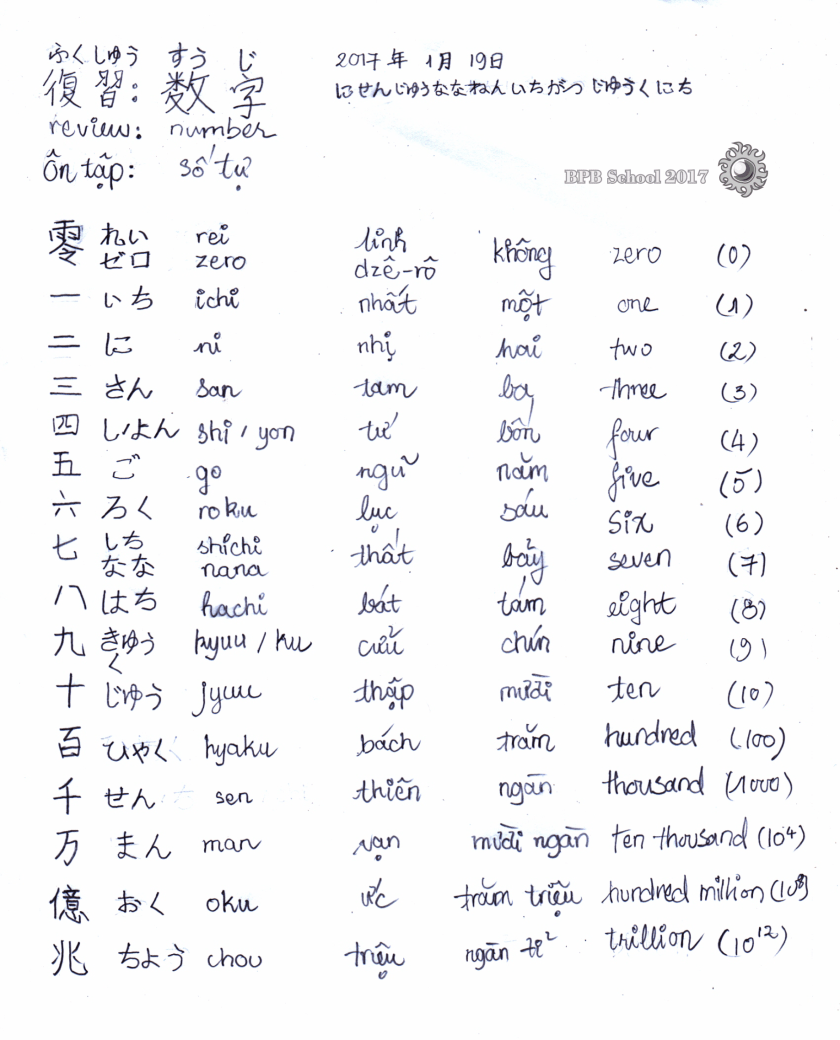 ふくしゅう すうじ
復習: 数字
review: number
ôn tập: số tự
2017年 1月 19日
にせんじゅうななねんいちがつ じゅうくにち
BPB School 2017
零 れい rei linh không zero (0)
ゼロ zero dzê-rô
一 いち ichi nhất một one (1)
二 に ni nhị hai two (2)
三 さん san tam ba three (3)
四 し/よん shi / yon tư bốn four (4)
五 ご go ngũ năm five (5)
六 ろく roku lục sáu six (6)
七 しち shichi thất bảy seven (7)
なな nana
八 はち hachi bát tám eight (8)
九 きゅう kyuu / ku cửu chín nine (9)
く
十 じゅう jyuu thập mười ten (10)
百 ひゃく hyaku bách trăm hundred (100)
千 せん sen thiên ngàn thousand (1000)
万 まん man vạn mười ngàn ten thousand (10⁴)
億 おく oku ức trăm triệu hundred million (10⁸)
兆 ちょう chou triệu ngàn tỉ trillion (10¹²)